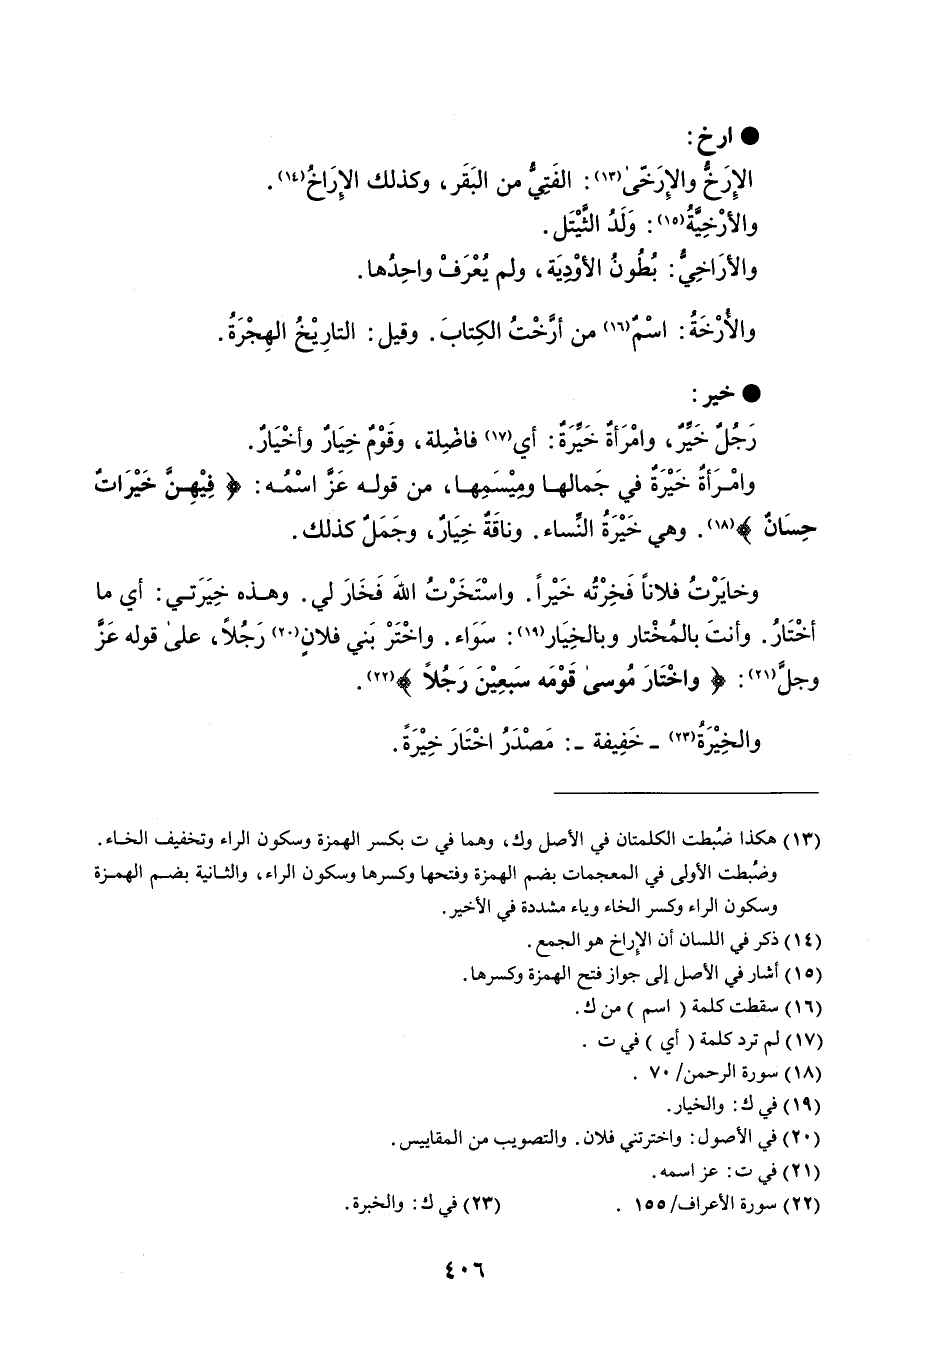 ● ارخ :
الإِرَخُّ والإِرَخّىٰ(١٣) : الفَتِيُّ من البَقَر ، وكذلك الإِرَاخُ(١٤) .
والأرْخِيَّةُ(١٥) : وَلَدُ الثَّيْتَل .
والأرَاخِيُّ : بُطُونُ الأوْدِيَة ، ولم يُعْرَفْ واحِدُها .
والأُرْخَةُ : اسْمٌ(١٦) من أرَّخْتُ الكِتابَ . وقيل : التاريْخُ الهِجْرَةُ .
● خير :
رَجُلٌ خَيِّرٌ ، وامْرَأةٌ خَيِّرَةٌ : أي(١٧) فاضْلِة ، وقَوْمٌ خِيَارٌ وأخْيَارٌ .
وامْـرَأةٌ خَيْرَةٌ في جَمالهـا ومِيْسَمِهـا ، من قولـه عَزَّ اسْمُـه : ﴿ فِيْهِـنَّ خَيْرَاتٌ
حِسَانٌ ﴾(١٨) . وهي خَيْرَةُ النِّساء . وناقَةٌ خِيَارٌ ، وجَمَلٌ كذلك .
وخايَرْتُ فلاناً فَخِرْتُه خَيْراً . واسْتَخَرْتُ اللهَ فَخَارَ لي . وهـذه خِيَرَتـي : أي ما
أخْتَارُ . وأنتَ بالمُخْتار وبالخِيَار(١٩) : سَوَاء . واخْتَرْ بَني فلانٍ(٢٠) رَجُلاً ، علىٰ قوله عَزَّ
وجلَّ(٢١) : ﴿ واخْتَارَ مُوسىٰ قَوْمَه سَبعِيْنَ رَجُلاً ﴾(٢٢) .
والخِيْرَةُ(٢٣) ـ خَفِيفة ـ : مَصْدَرُ اخْتَارَ خِيْرَةً .
(١٣) هكذا ضُبطت الكلمتان في الأصل وك ، وهما في ت بكسر الهمزة وسكون الراء وتخفيف الخـاء .
وضُبطت الأولى في المعجمات بضم الهمزة وفتحها وكسرها وسكون الراء ، والثـانية بضـم الهمـزة
وسكون الراء وكسر الخاء وياء مشددة في الأخير .
(١٤) ذكر في اللسان أن الإراخ هو الجمع .
(١٥) أشار في الأصل إلى جواز فتح الهمزة وكسرها .
(١٦) سقطت كلمة ( اسم ) من ك .
(١٧) لم ترد كلمة ( أي ) في ت .
(١٨) سورة الرحمن/ ٧٠ .
(١٩) في ك : والخيار .
(٢٠) في الأصول : واخترتني فلان . والتصويب من المقاييس .
(٢١) في ت : عز اسمه .
(٢٢) سورة الأعراف/ ١٥٥ . (٢٣) في ك : والخبرة .
٤٠٦